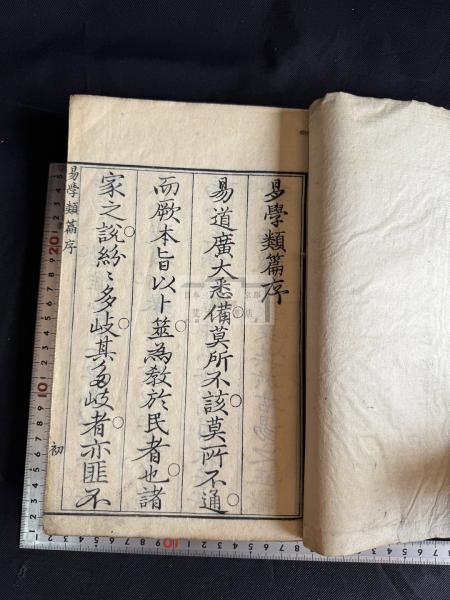 易學類篇序
易道廣大悉備莫所不該莫所不通
而厥本旨以卜筮為教於民者也諸
家之説紛〻多岐其多岐者亦匪不
易學類篇序
初